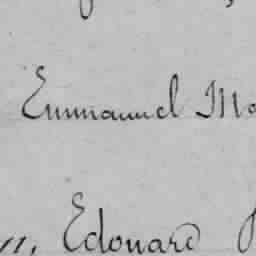 Emmanuel Ma
n, Edouard